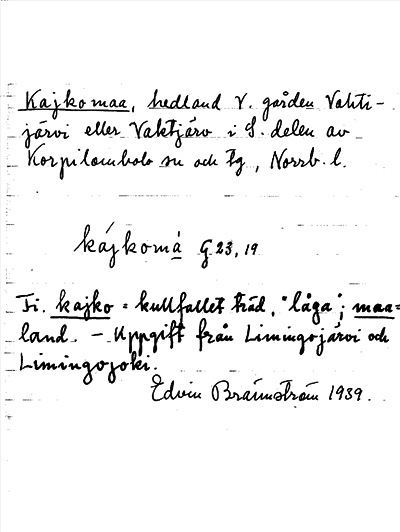 Kajkomaa, hedland V. gården Vahti-
järvi eller Vaktjärv i S. delen av
Korpilombolo sn och tg, Norrb. l.
kájkomá G 23, 19
Fi. kajko = kullfallet träd, "låga"; maa=
land. – Uppgift från Limingojärvi och
Limingojoki.
Edvin Brännström 1939.